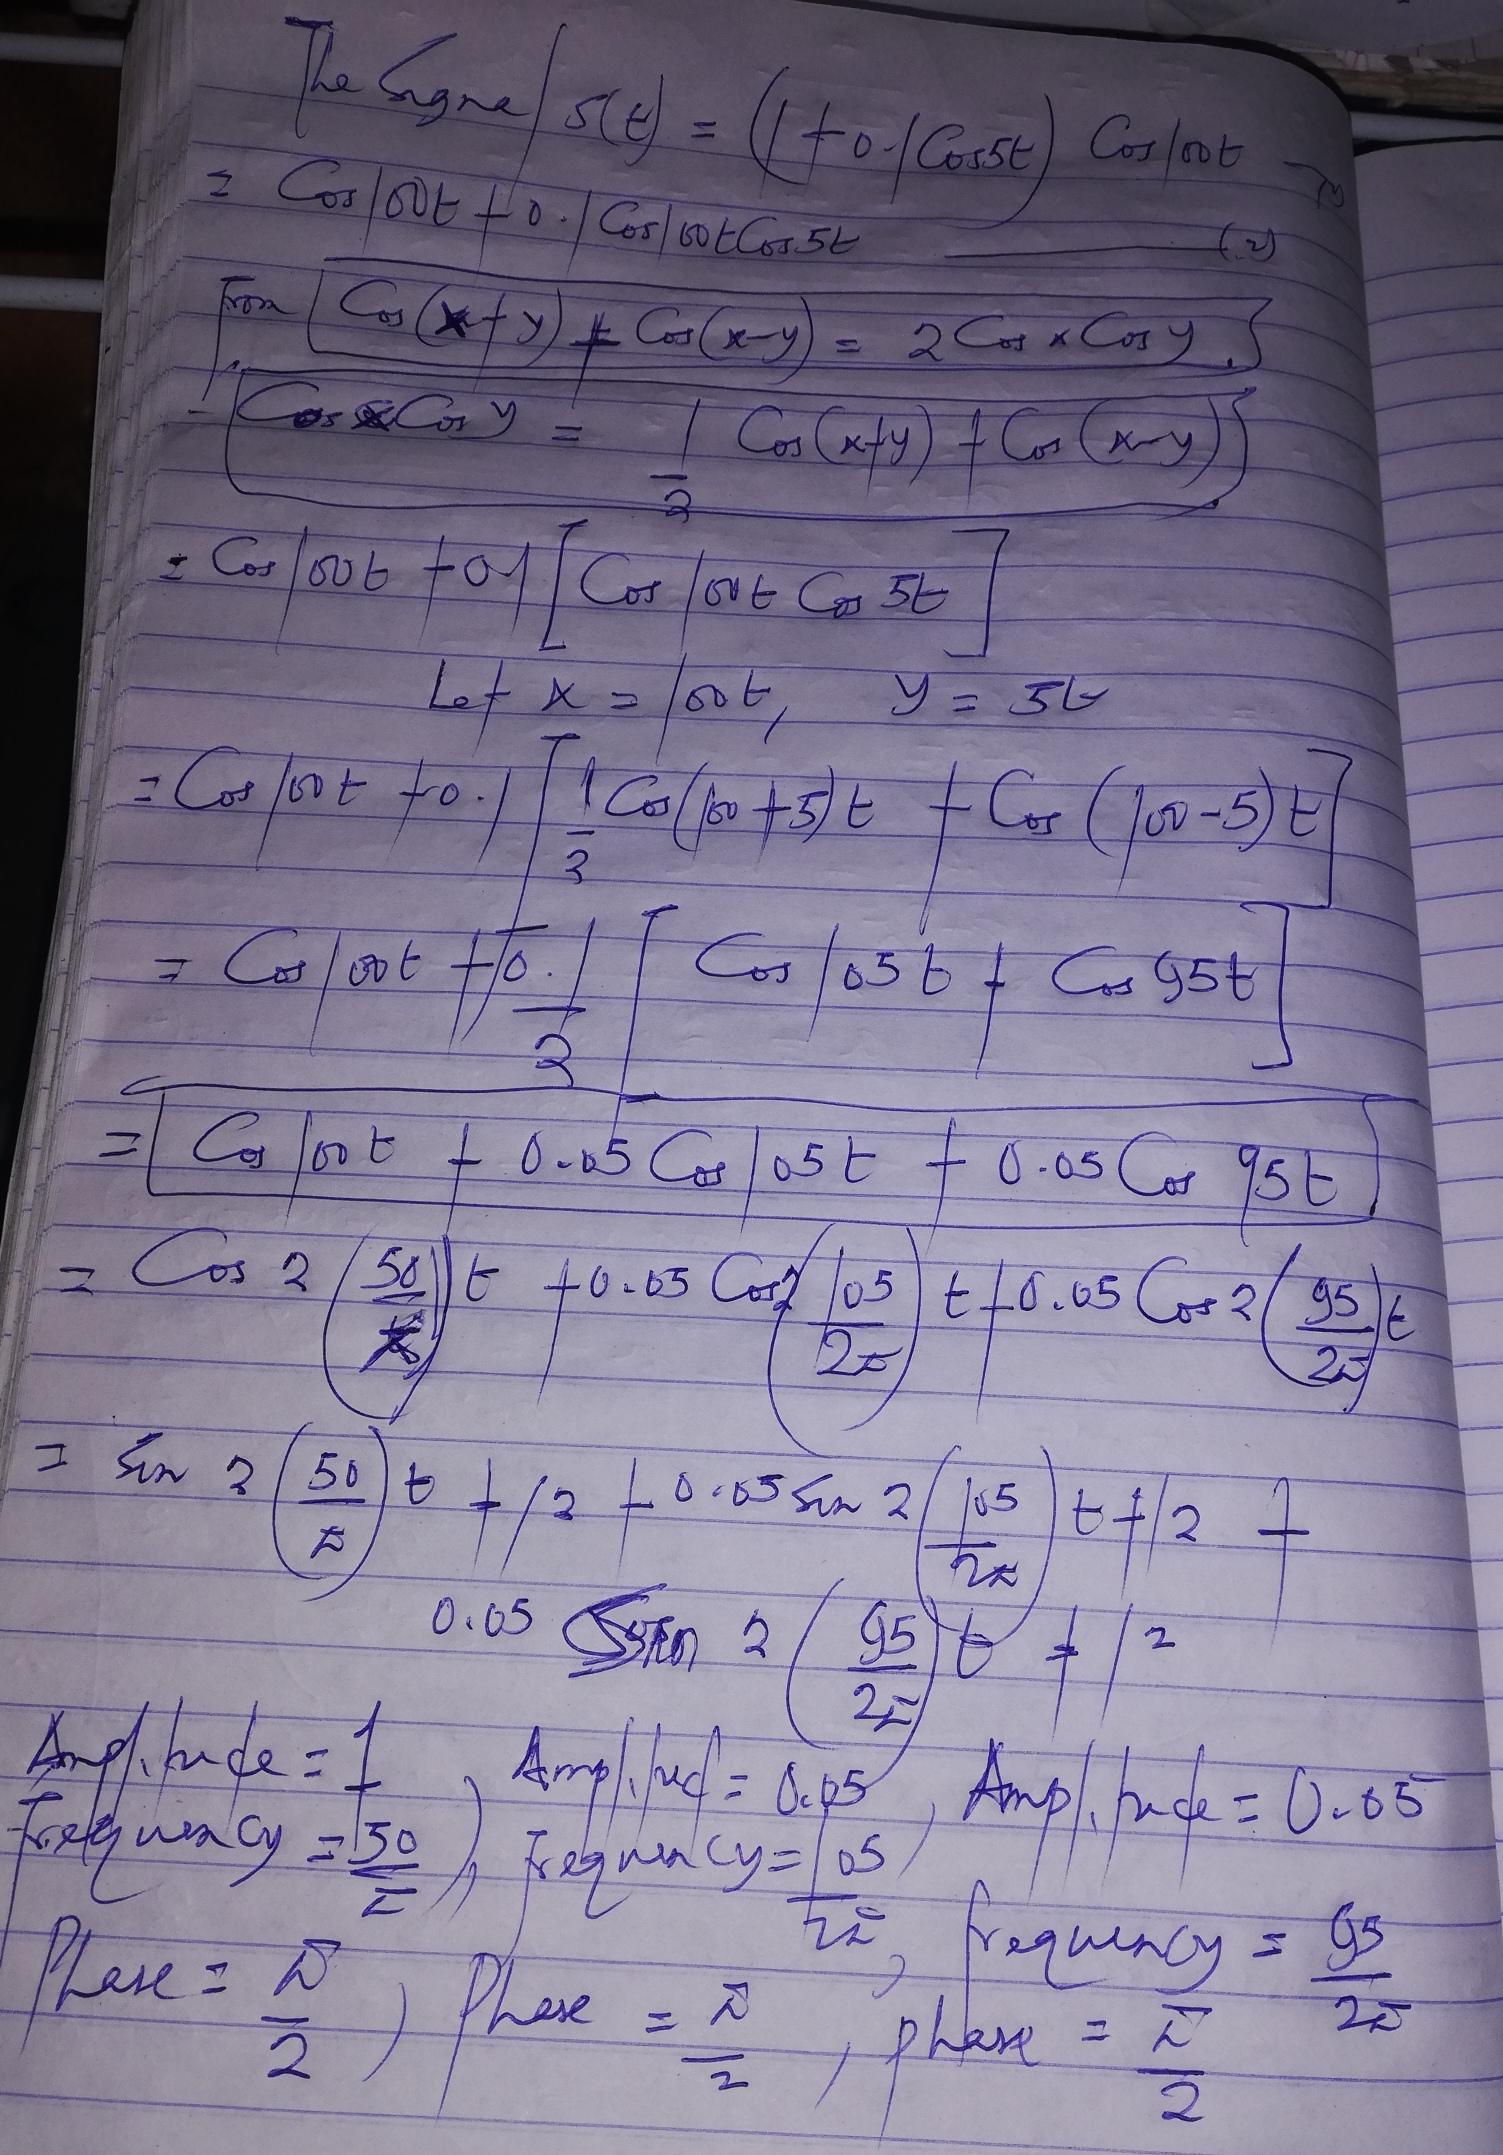 The Signal s(t) = (1 + 0.1 Cos5t) Cos100t
= Cos100t + 0.1 Cos100tCos5t (2)
From Cos(x+y) + Cos(x-y) = 2 Cos x Cos y.
Cos x Cos y = 1/2 Cos(x+y) + Cos(x-y)
= Cos100t + 0.1 [Cos 100t Cos 5t]
Let x = 100t, y = 5t
= Cos100t + 0.1 [1/2 Cos(100+5)t + Cos(100-5)t]
= Cos100t + 0.1/2 [Cos105t + Cos 95t]
= Cos100t + 0.05 Cos105t + 0.05 Cos 95t
= Cos 2 (50/π) t + 0.05 Cos2 (105/2π) t + 0.05 Cos 2 (95/2π) t
= Sin 2 (50/π) t + /2 + 0.05 Sin 2 (105/2π) t + /2 +
0.05 Sin 2 (95/2π) t + /2
Amplitude = 1, Amplitud = 0.05, Amplitude = 0.05
Frequency = 50/π, Frequency = 105/2π, frequency = 95/2π
Phase = π/2, Phase = π/2, phase = π/2